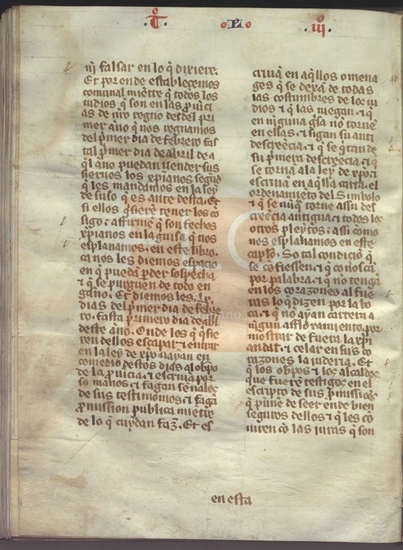 .T. .L. .iij.
iij falsar en lo q̃ dixiere.
Et por ende establecemos
comunal miẽtre q̃ todos los
iudios, q̃ son en las ꝓuĩci
as de nr̃o regno desdel pri
mer anno q̃ nos regnamos
del pͥmer dia de febrero fas
tal pͥmer dia de abril de a
q̃l anno puedan uender sus
sieruos los xp̃ianos segũd
q̃ les mandamos en la ley
de suso q̃ es ante desta. Et
si ellos q̃sierẽ tener los cõ
sigo: ⁊ asfirmã q̃ son fechos
xp̃ianos en la guisa q̃ nos
esplanamos: en este libro.
ca nos les diemos espacio
en q̃ pueda pͥder sospecha
⁊ q̃ se purguen de todo en
ganno. Et diemos les .lx.
dias del pͥmer dia de febre
ro. fasta pͥmero dia de abril
deste anno. Onde los q̃ q̃sie
ren dellos escapar ⁊ entrar
en la ley de xp̃o uayan en
comedio destos dias al obpo
de la ꝓuĩcia. ⁊ escriuã por
so mano. ⁊ fagan sennales
de sus testimonios. ⁊ fagã
ꝓmission publica miẽtre
de lo q̃ cuydan faz̃. Et es
criuã en aq̃llos omena
ges q̃ se dexã de todas
las costumbres de los iu
dios ⁊ q̃ las niegan. ⁊ q̃
en nĩguna gͥsa no tornẽ
en ellas. ⁊ sigan su anti
descreẽcia. ⁊ q̃ se q̃tan de
su pͥmera descreẽcia ⁊ q̃
se torna a la ley de xp̃o: ⁊
escriuã en aq̃lla carta. el
ordenamiẽto del simbolo
⁊ q̃ se nũq̃ torne assi des
creẽcia antigua: ⁊ todos los
otros pleytos: ⁊ assi como
nos esplanamos en este
capl̃o. So tal condiciõ q̃
se cõfiessen: ⁊ q̃ conoscã
por palabra. ⁊ q̃ no tengã
en los corazones al fue
ras lo q̃ dizen por la bo
ca. ⁊ q̃ no ayan carrera a
nĩgun assacamiento. por
mostrar de fuera la xp̃i
andat. ⁊ celar en sus co
razones la iuderia. Et
q̃ los obpos ⁊ los alcaldes
que fuerẽ testigos en el
escripto de sus ꝓmissiões
q̃ puñe de seer ende bien
seguros dellos ⁊ q̃ les co
niurẽ cõ las iuras q̃ son
en esta